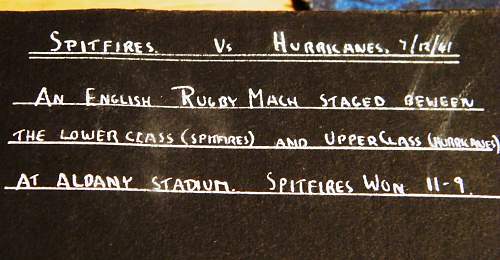 SPITFIRES. Vs HURRICANES, 7/12/41
AN ENGLISH RUGBY MACH STAGED BEWEEN
THE LOWER CLASS (SPITFIRES) AND UPPER CLASS (HURRICANES)
AT ALBANY STADIUM. SPITFIRES WON 11-9.